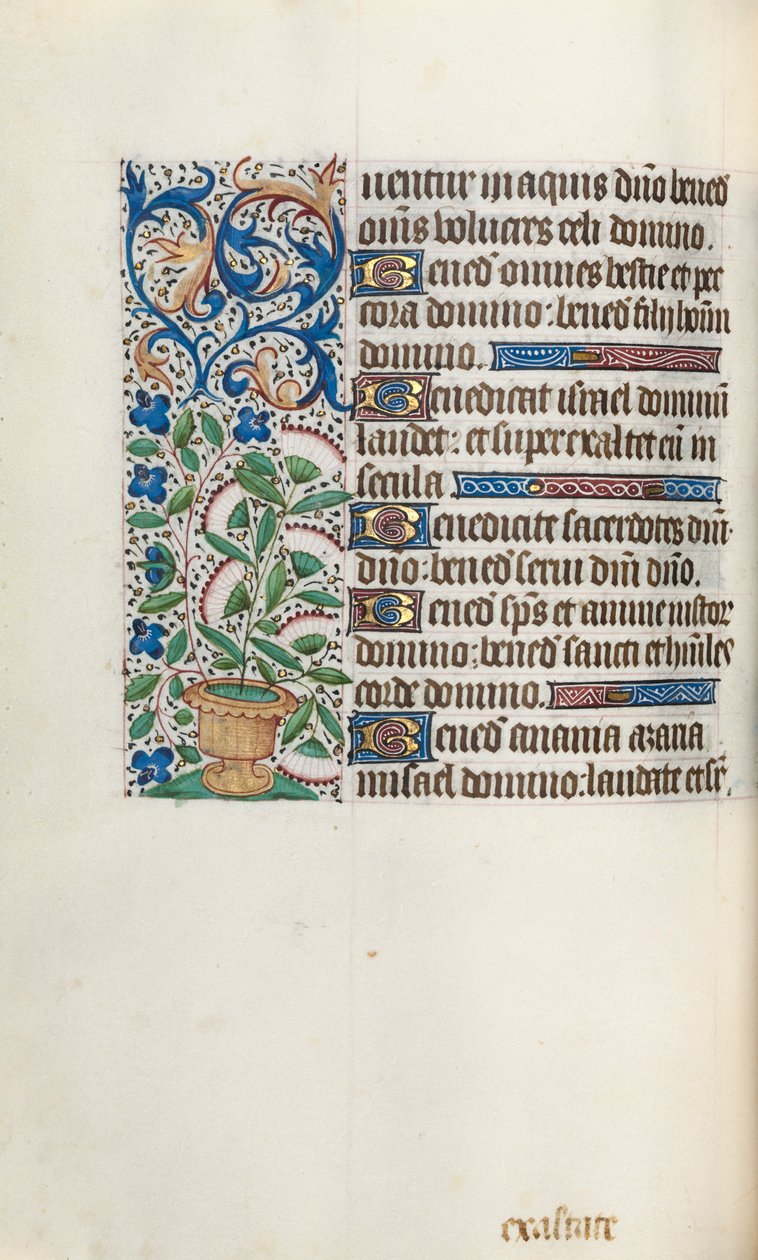 uentur in aquis dn̄o bened̄
om̄s volucres celi domino.
Bened̄ omnes bestie et pec
cora domino: bened̄ filij hoīm
domino.
Benedicat israel dominū
laudet: et superexaltet eū in
secula
Benedicite sacerdotes dm̄i
dn̄o: bened̄ serui dm̄i dn̄o.
Bened̄ sp̄s et anime iustor
domino: bened̄ sancti et hūiles
corde domino.
Bened̄ anania azaria
misael domino: laudate et sr̄.
exaltate